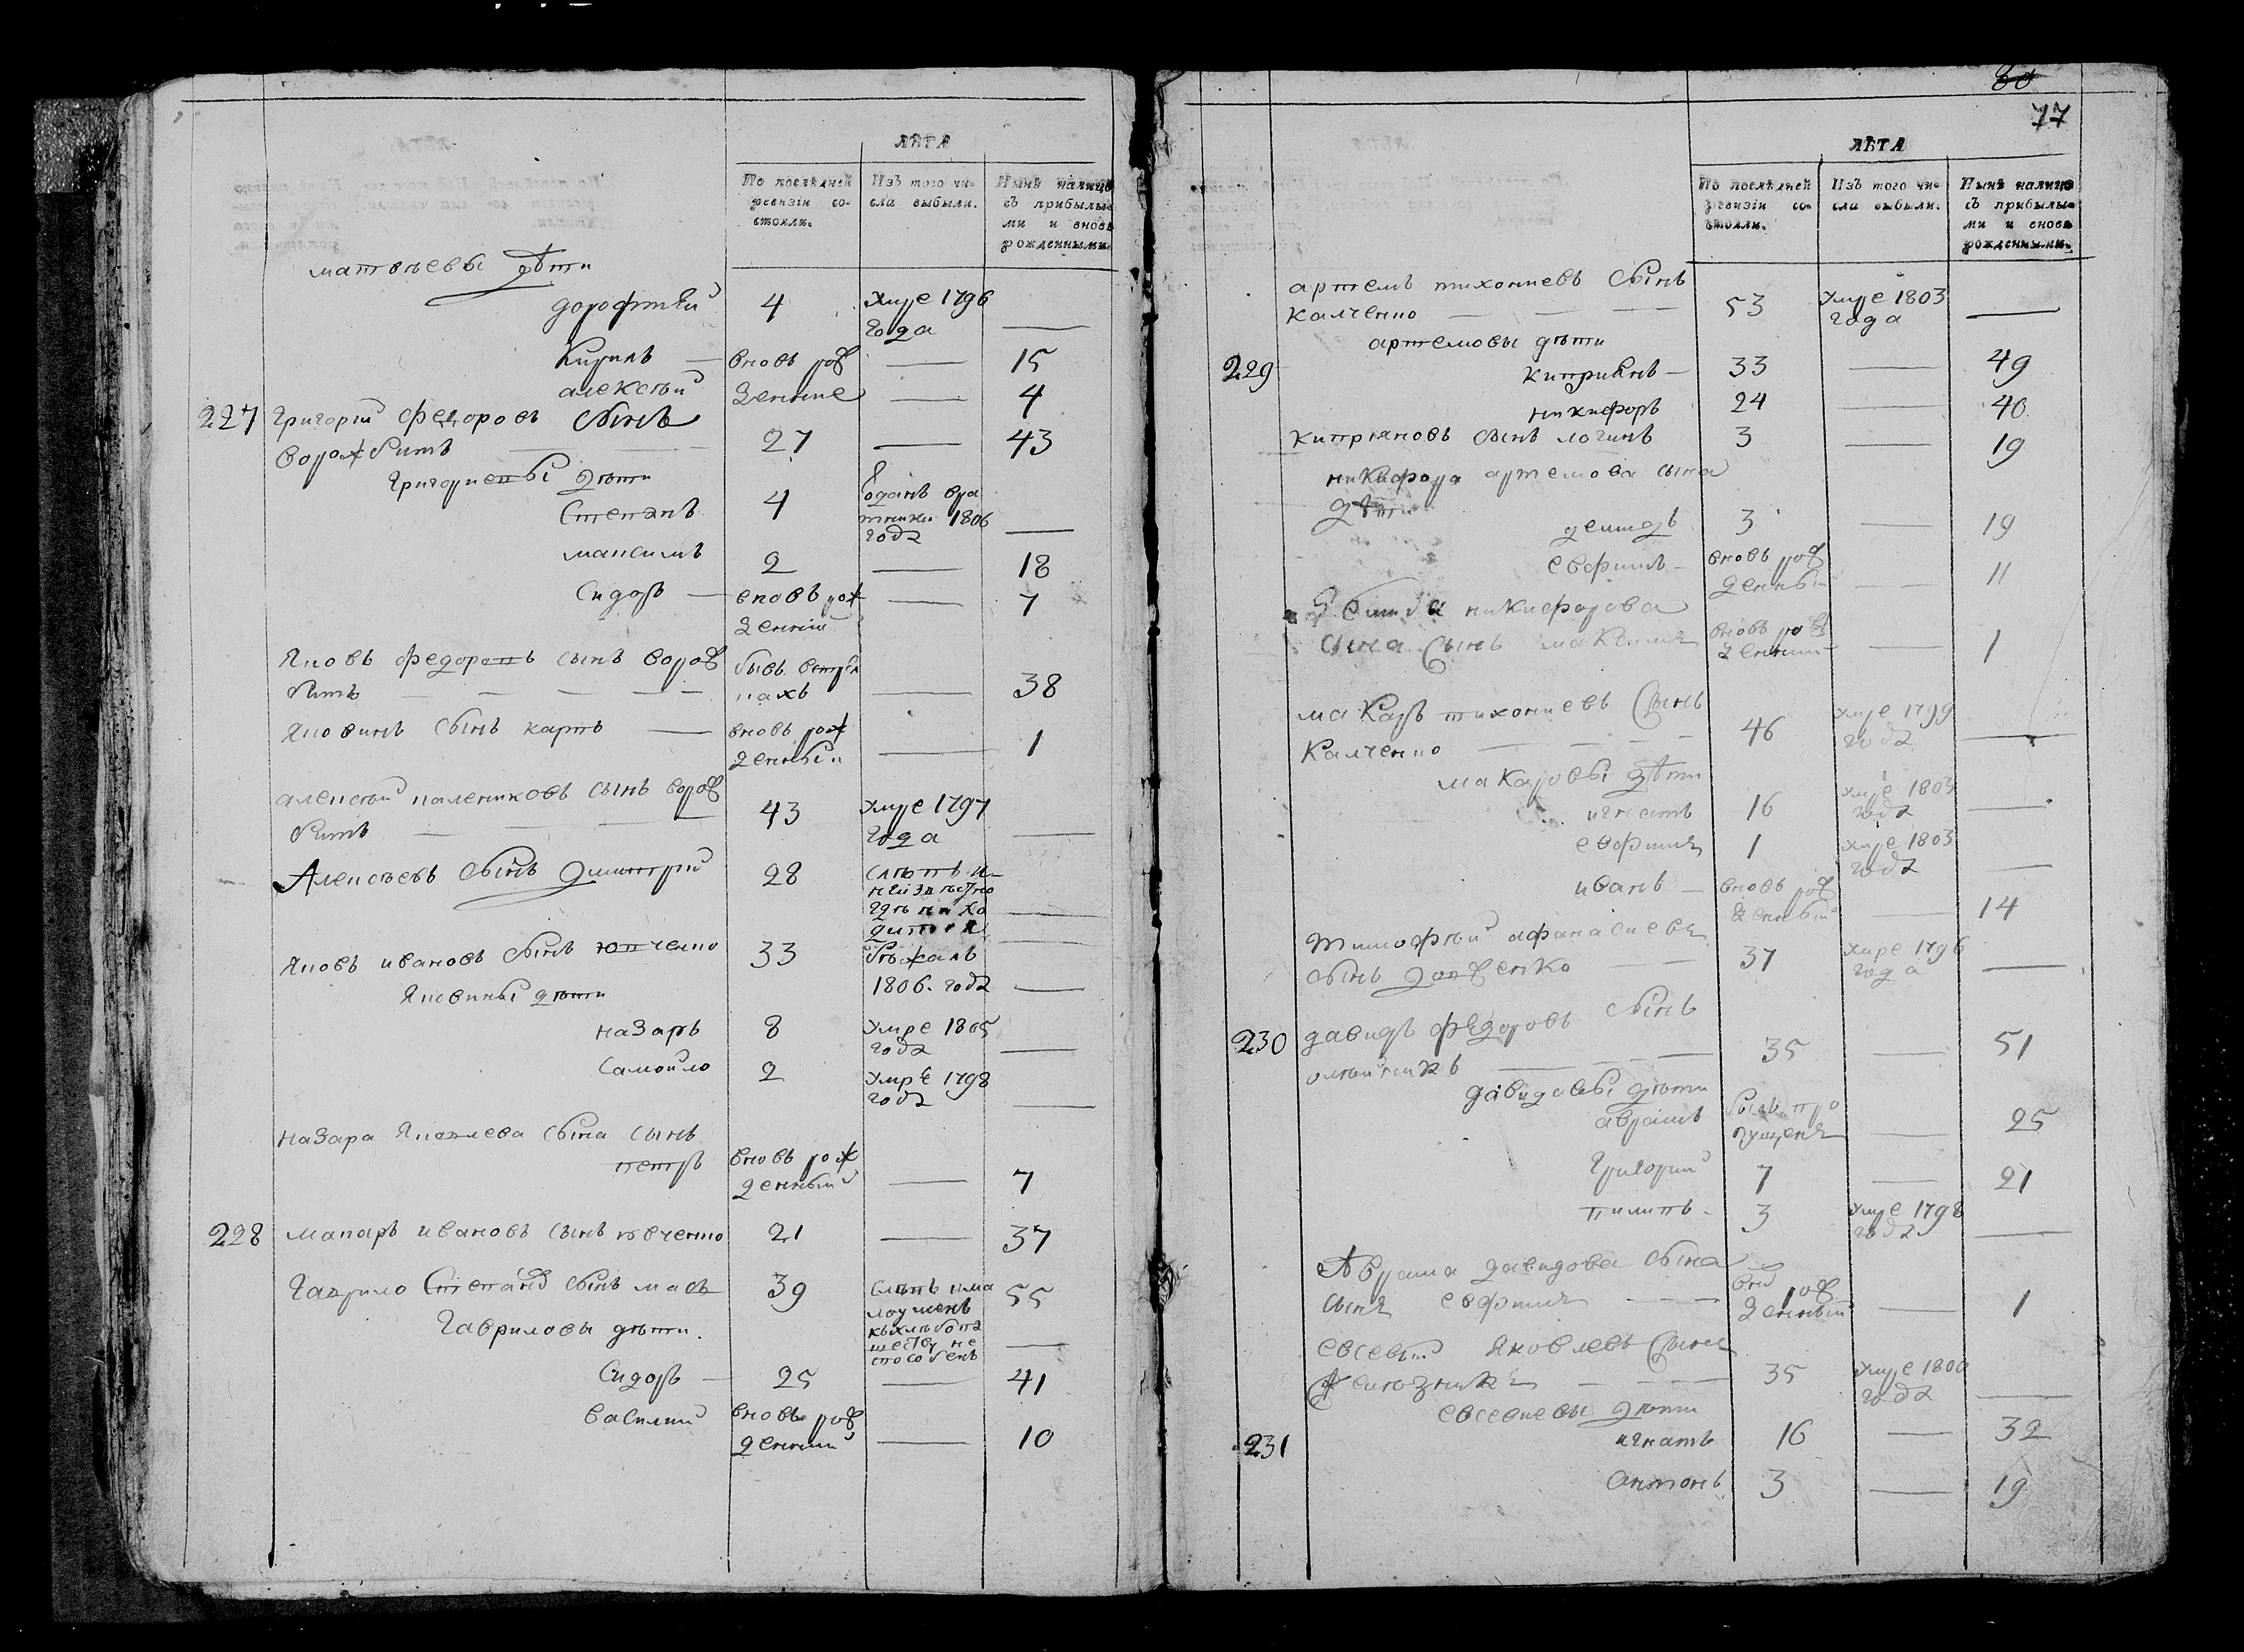 ЛѢТА
По послѣдней Изъ того чи- Нынѣ налицо
ревизіи со- сла выбыли. съ прибылы-
стояли. ми и вновь
рожденными.
матвѣевы дѣти
дорофѣй 4 умре 1796
года —
Кирилъ — вновь рож — 15
алексѣй денние — 4
227 григорій федоровъ сынъ
ворожбитъ 27 — 43
григориевы дѣти
Степанъ 4 отданъ
1806 —
года
максимъ 2 — 18
Сидоръ — вновь рож — 7
денній
Яковъ федоровъ сынъ ворож бывъ
битъ — — — — — 38
Яковинъ сынъ карпъ — вновь рож — 1
денный
алексѣй сынъ ворож
битъ — — — 43 умре 1797
года —
Алексѣевъ сынъ димитрій 28 слѣпъ и
неизвѣстно
гдѣ нахо —
дится
Яковъ ивановъ сынъ юпченко 33 бѣжалъ —
1806. года —
Яковины дѣти
назаръ 8 умре 1805
года —
Самойло 2 умре 1798
года —
назара Яковлева сына сынъ
петръ вновь рож
денный — 7
228 макаръ ивановъ сынъ 21 — 37
гаврило Степановъ сынъ 39 слѣпъ 55
гавриловы дѣти.
—
способенъ
Сидоръ — 25 — 41
василий вновь рож
денний — 10
60
77
ЛѢТА
По послѣдней Изъ того чи- Нынѣ налицо
ревизіи со- сла выбыли. съ прибылы-
стояли. ми и вновь
рожденными.
артемъ тихониевъ сынъ
калченко — — — 53 умре 1803 —
года
артемовы дѣти
229 киприянъ — 33 — 49
никифоръ 24 — 40
киприановъ сынъ логинъ 3 — 19
никифора артемова сына
дѣти
демидъ 3 — 19
евфимъ — вновь рож
денный — 11
никифорова
сына сынъ максимъ вновь рож
денный — 1
макаръ тихониевъ сынъ
калченко — — — 46 умре 1799
года —
макаровы дѣти
игнатъ 16 умре 1803
года —
евфимъ 1 умре 1803
года —
иванъ — вновь рож
денный — 14
тимофѣй афанасиевъ
сынъ — — 37 умре 1796
года —
230 давидъ федоровъ сынъ
олейникъ — — — 35 — 51
давидовы дѣти
аврамъ былъ про
пущенъ — 25
григорий 7 — 21
пилипъ — 3 умре 1798
года —
Аврама давидова сына
сынъ евфимъ — — вновь рож
денный — 1
евсевій Яковлевъ сынъ
— — — 35 умре 1800
года —
евсевиевы дѣти
231 игнатъ 16 — 32
антонъ 3 — 19